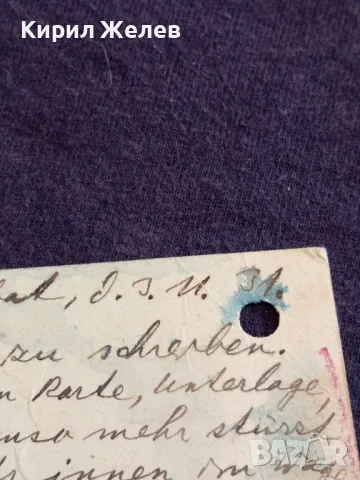 Кирил Желев
at, d. 3. 11. 31.
zu schreiben.
Karte, Unterlage,
umso mehr stürzt
innen im Wag
BAZAR